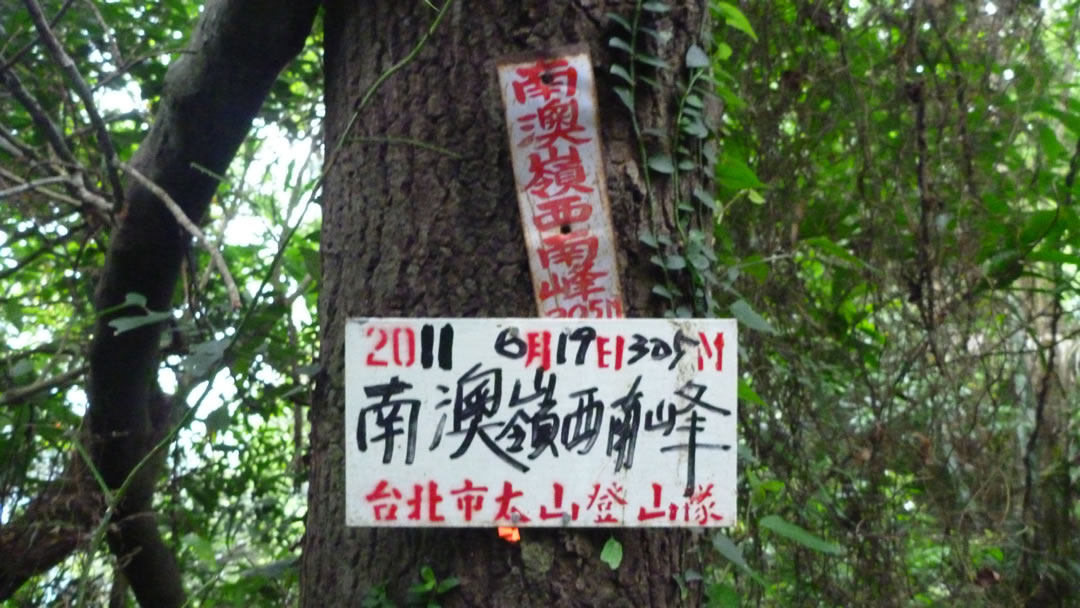 南澳嶺西南峰305M
2011 6月19日305M
南澳嶺西南峰
台北市太山登山隊